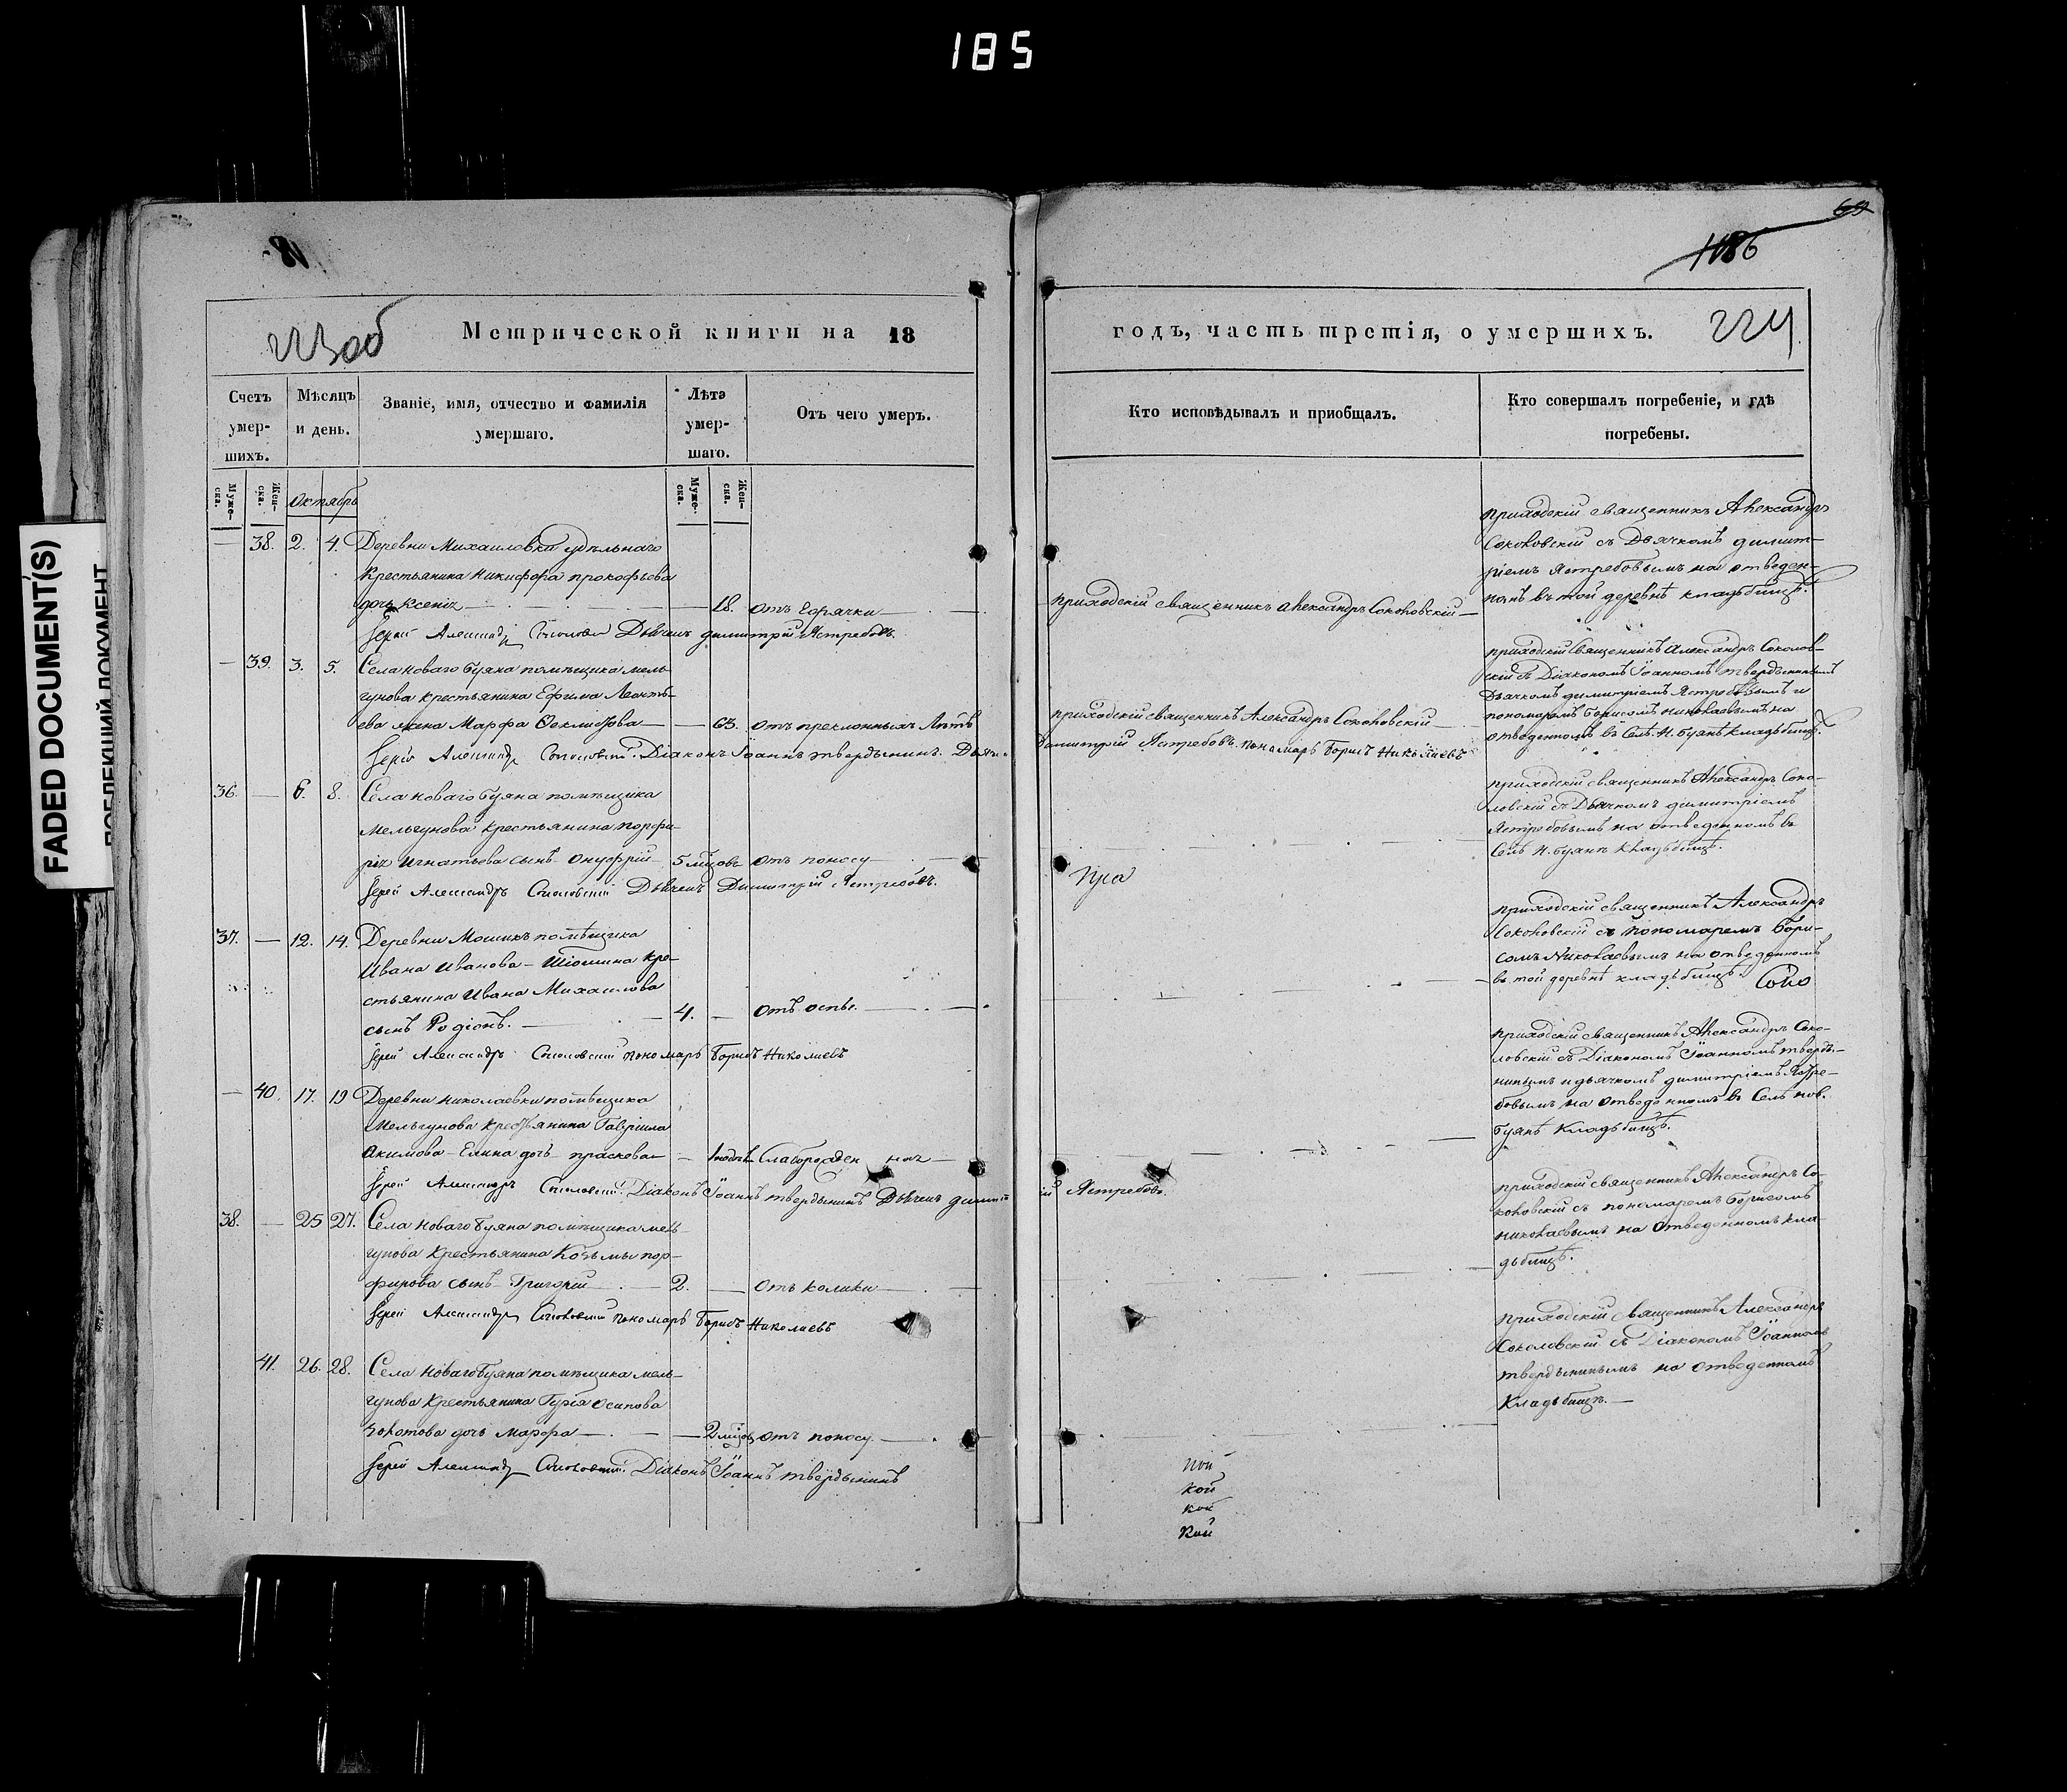 185
69
1186
223об
Метрической книги на 18
годъ, часть третія, о умершихъ.
224
Счетъ умер-шихъ.
Мѣсяцъ и день.
Званіе, имя, отчество и фамилія умершаго.
Лѣта умер-шаго.
Отъ чего умеръ.
Кто исповѣдывалъ и пріобщалъ.
Кто совершалъ погребеніе, и гдѣ погребены.
Муже-ска.
Жен-ска.
Октябрь
Муже-ска.
Жен-ска.
38. 2. 4. Деревни Михаиловки удѣльнаго
крестьянина Никифора прокофьева
дочь Ксенія 18. отъ горячки
Іерей Александръ Соколовскій Дьячекъ димитрій Ястребовъ.
приходскій священникъ Александръ Соколовскій
приходскій священникъ Александръ
Соколовскій съ Дьячкомъ димит-
ріемъ Ястребовымъ на отведен-
номъ въ той деревнѣ кладьбищѣ.
39. 3. 5. Села Новаго буяна помѣщика мель-
гунова крестьянина Ефима Леонть-
ева жена Марфа Феклистова 63. отъ преклонныхъ Лѣтъ
Іерей Александръ Соколовскій. Діаконъ Іоаннъ твердынинъ. Дьяч.
приходскій священникъ Александръ Соколовскій
Димитрій Ястребовъ. пономарь Борисъ Николаевъ
приходскій священникъ Александръ Соколов-
скій съ Діакономъ Іоанномъ твердынинымъ
дьячкомъ димитріемъ Ястребовымъ и
пономаремъ Борисомъ николаевымъ на
отведенномъ въ Селѣ Н. буянѣ кладьбищѣ.
36. 6. 8. Села Новаго буяна помѣщика
Мельгунова крестьянина порфи-
рія Игнатьева сынъ Онуфрій 5 мѣцовъ отъ поносу
Іерей Александръ Соколовскій Дьячекъ Димитрій Ястребовъ.
приходскій священникъ Александръ Соко-
ловскій съ Дьячкомъ димитріемъ
Ястребовымъ на отведенномъ въ
Селѣ Н. буянѣ кладьбищѣ.
37. 12. 14. Деревни Мошикъ помѣщика
Ивана Иванова кре-
стьянина Ивана Михаилова
сынъ Родіонъ. 4. отъ оспы.
Іерей Александръ Соколовскій пономарь Борисъ Николаевъ
приходскій священникъ Александръ
Соколовскій съ пономаремъ Бори-
сомъ Николаевымъ на отведенномъ
въ той деревнѣ кладьбищѣ. Соко
40. 17. 19 Деревни николаевки помѣщика
Мельгунова крестьянина Гавріила
Акимова Елина дочь прасковья
Іерей Александръ Соколовскій. Діаконъ Іоаннъ твердынинъ Дьячекъ димит
ій Ястребовъ.
приходскій священникъ Александръ Соко-
ловскій съ Діакономъ Іоанномъ тверды-
нинымъ и дьячкомъ димитріемъ Ястре-
бовымъ на отведенномъ въ Селѣ нов.
буянѣ Кладьбищѣ.
38. 25 27. Села новаго буяна помѣщика мель-
гунова крестьянина Козьмы пор-
фирова сынъ Григорій 2. отъ колики
Іерей Александръ Соколовскій пономарь Борисъ Николаевъ
приходскій священникъ Александръ Со-
коловскій съ пономаремъ Борисомъ
николаевымъ на отведенномъ кла-
дьбищѣ.
41. 26. 28. Села Новаго буяна помѣщика мель-
гунова крестьянина Гурія Осипова
дочь Марфа 2 мѣцовъ отъ поносу.
Іерей Александръ Соколовскій. Діаконъ Іоаннъ твердынинъ
приходскій священникъ Александръ
Соколовскій съ Діакономъ Іоанномъ
твердынинымъ на отведенномъ
Кладьбищѣ.
кой
кой
FADED DOCUMENT(S)